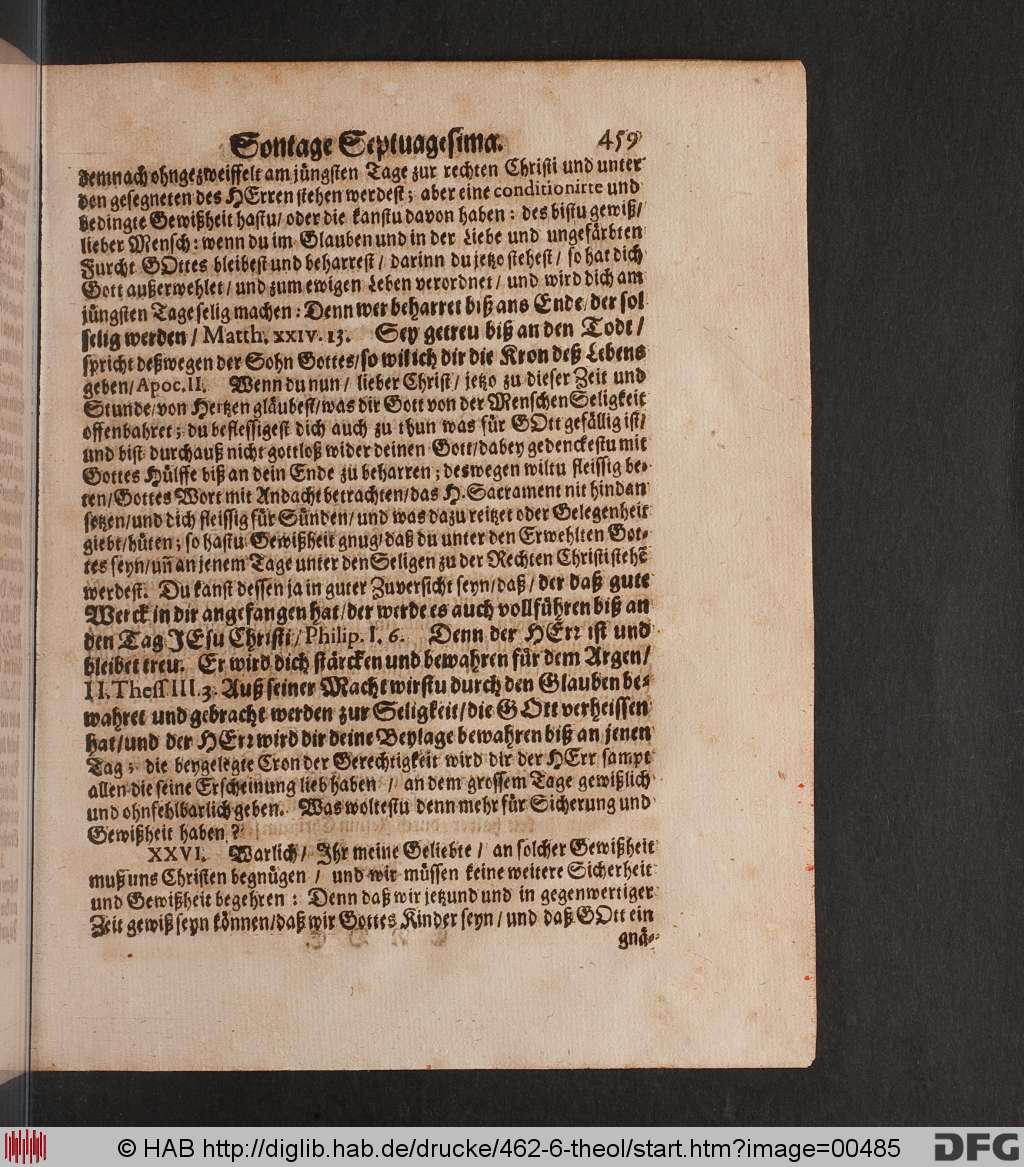 Sontage Septuagesima. 459
demnach ohngezweiffelt am jüngsten Tage zur rechten Christi und unter
den gesegneten des HErren stehen werdest; aber eine conditionirte und
bedingte Gewißheit hastu/ oder die kanstu davon haben: des bistu gewiß/
lieber Mensch: wenn du im Glauben und in der Liebe und ungefärbten
Furcht GOttes bleibest und beharrest/ darinn du jetzo stehest/ so hat dich
Gott außerwehlet/ und zum ewigen Leben verordnet/ und wird dich am
jüngsten Tage selig machen: Denn wer beharret biß ans Ende/ der sol
selig werden/ Matth. xxiv. 13. Sey getreu biß an den Todt/
spricht deßwegen der Sohn Gottes/ so wil ich dir die Kron deß Lebens
geben/ Apoc. II. Wenn du nun/ lieber Christ/ jetzo zu dieser Zeit und
Stunde/ von Hertzen gläubest/ was dir Gott von der Menschen Seligkeit
offenbahret; du beflessigest dich auch zu thun was für GOtt gefällig ist/
und bist durchauß nicht gottloß wider deinen Gott/ dabey gedenckestu mit
Gottes Hülffe biß an dein Ende zu beharren; deswegen wiltu fleissig be-
ten/ Gottes Wort mit Andacht betrachten/ das H. Sacrament nit hindan
setzen/ und dich fleissig für Sünden/ und was dazu reitzet oder Gelegenheit
giebt/ hüten; so hastu Gewißheit gnug/ daß du unter den Erwehlten Got-
tes seyn/ uñ an jenem Tage unter den Seligen zu der Rechten Christi stehẽ
werdest. Du kanst dessen ja in guter Zuversicht seyn/ daß/ der daß gute
Werck in dir angefangen hat/ der werde es auch vollführen biß an
den Tag JEsu Christi/ Philip. I. 6. Denn der HErr ist und
bleibet treu. Er wird dich stärcken und bewahren für dem Argen/
II. Thess. III. 3. Auß seiner Macht wirstu durch den Glauben be-
wahret und gebracht werden zur Seligkeit/ die GOtt verheissen
hat/ und der HErr wird dir deine Beylage bewahren biß an jenen
Tag; die beygelegte Cron der Gerechtigkeit wird dir der HErr sampt
allen die seine Erscheinung lieb haben / an dem grossem Tage gewißlich
und ohnfehlbarlich geben. Was woltestu denn mehr für Sicherung und
Gewißheit haben?
XXVI. Warlich/ Ihr meine Geliebte/ an solcher Gewißheit
muß uns Christen begnügen / und wir müssen keine weitere Sicherheit
und Gewißheit begehren: Denn daß wir jetzund und in gegenwertiger
Zeit gewiß seyn können/ daß wir Gottes Kinder seyn/ und daß GOtt ein
gnä-
© HAB http://diglib.hab.de/drucke/462-6-theol/start.htm?image=00485
DFG